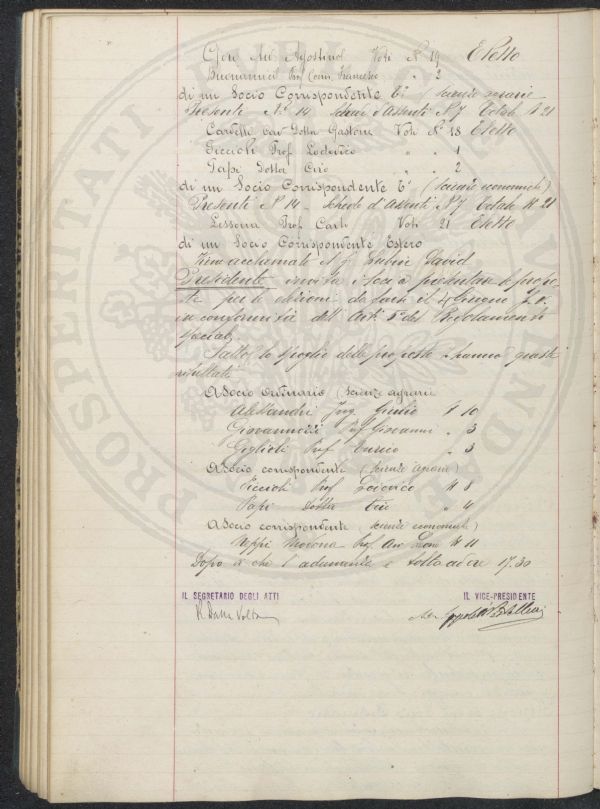 Agostino Voti N° 19 Eletto
Prof Francesco " 2
di un Socio Corrispondente Es° scienze agrarie
Presenti N° 14 Schede d'Assenti N 7 Totale N 21
cav Dotto Gastone Voti N° 18 Eletto
Piccioli Prof Lodovico " " 1
Papi Dotto Ciro " " 2
di un Socio Corrispondente (Scienze economiche)
Presenti N 14 - Schede d'Assenti N 7 Totale N 21
Lessona Prof Carlo Voti 21 Eletto
di un Socio Corrispondente Estero
Viene acclamato il S. Lubin David
Presidente invita i soci a presentare le propo-
ste per le elezioni da farsi il 4 Giugno p.v.
in conformità dell'Art. 5° del Regolamento
speciale
Fatto lo spoglio delle proposte si hanno questi
risultati
A Socio ordinario (Scienze agrarie
Alessandri Ing. Giulio N 10
Giovannozzi Prof Giovanni " 3
Giglioli Prof Enrico " 3
A Socio corrispondente (Scienze agrarie)
Piccioli Prof Lodovico N 8
Papi Dotto Ciro " 4
A Socio corrispondente (scienze economiche)
Neppi Modona Prof. Avv Leone N 11
Dopo di che l'adunanza è tolta ad ore 17.30
IL SEGRETARIO DEGLI ATTI IL VICE-PRESIDENTE
R. Dalla Volta
PROSPERITATI PUBLICAE AUGENDAE